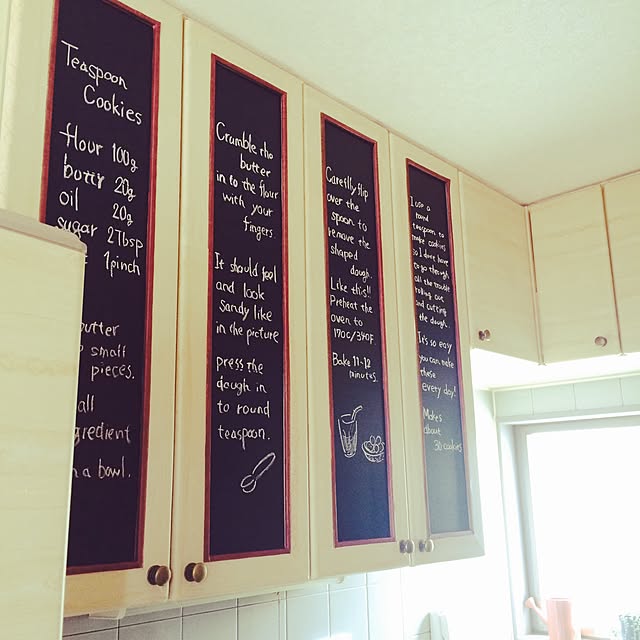 Teaspoon
Cookies
flour 100g
buttr 20g
oil 20g
sugar 2Tbsp
1pinch
butter
small
pieces.
all
gredient
a bowl.
Crumble rho
butter
in to the flour
with your
fingers
It should feel
and look
sandy like
in the picture
press the
dough in
to round
teaspoon.
Carefilly flip
over the
spoon to
remove the
shaped
dough.
Like this!!
Preheat the
oven to
170C/340F
Bake 11-12
minutes.
I use a
round
teaspoon to
make cookies
so I don't have
to go through
all the trouble
rolling out
and cutting
the dough.
It's so easy
you can make
these
every day!
Makes
about
30 cookies